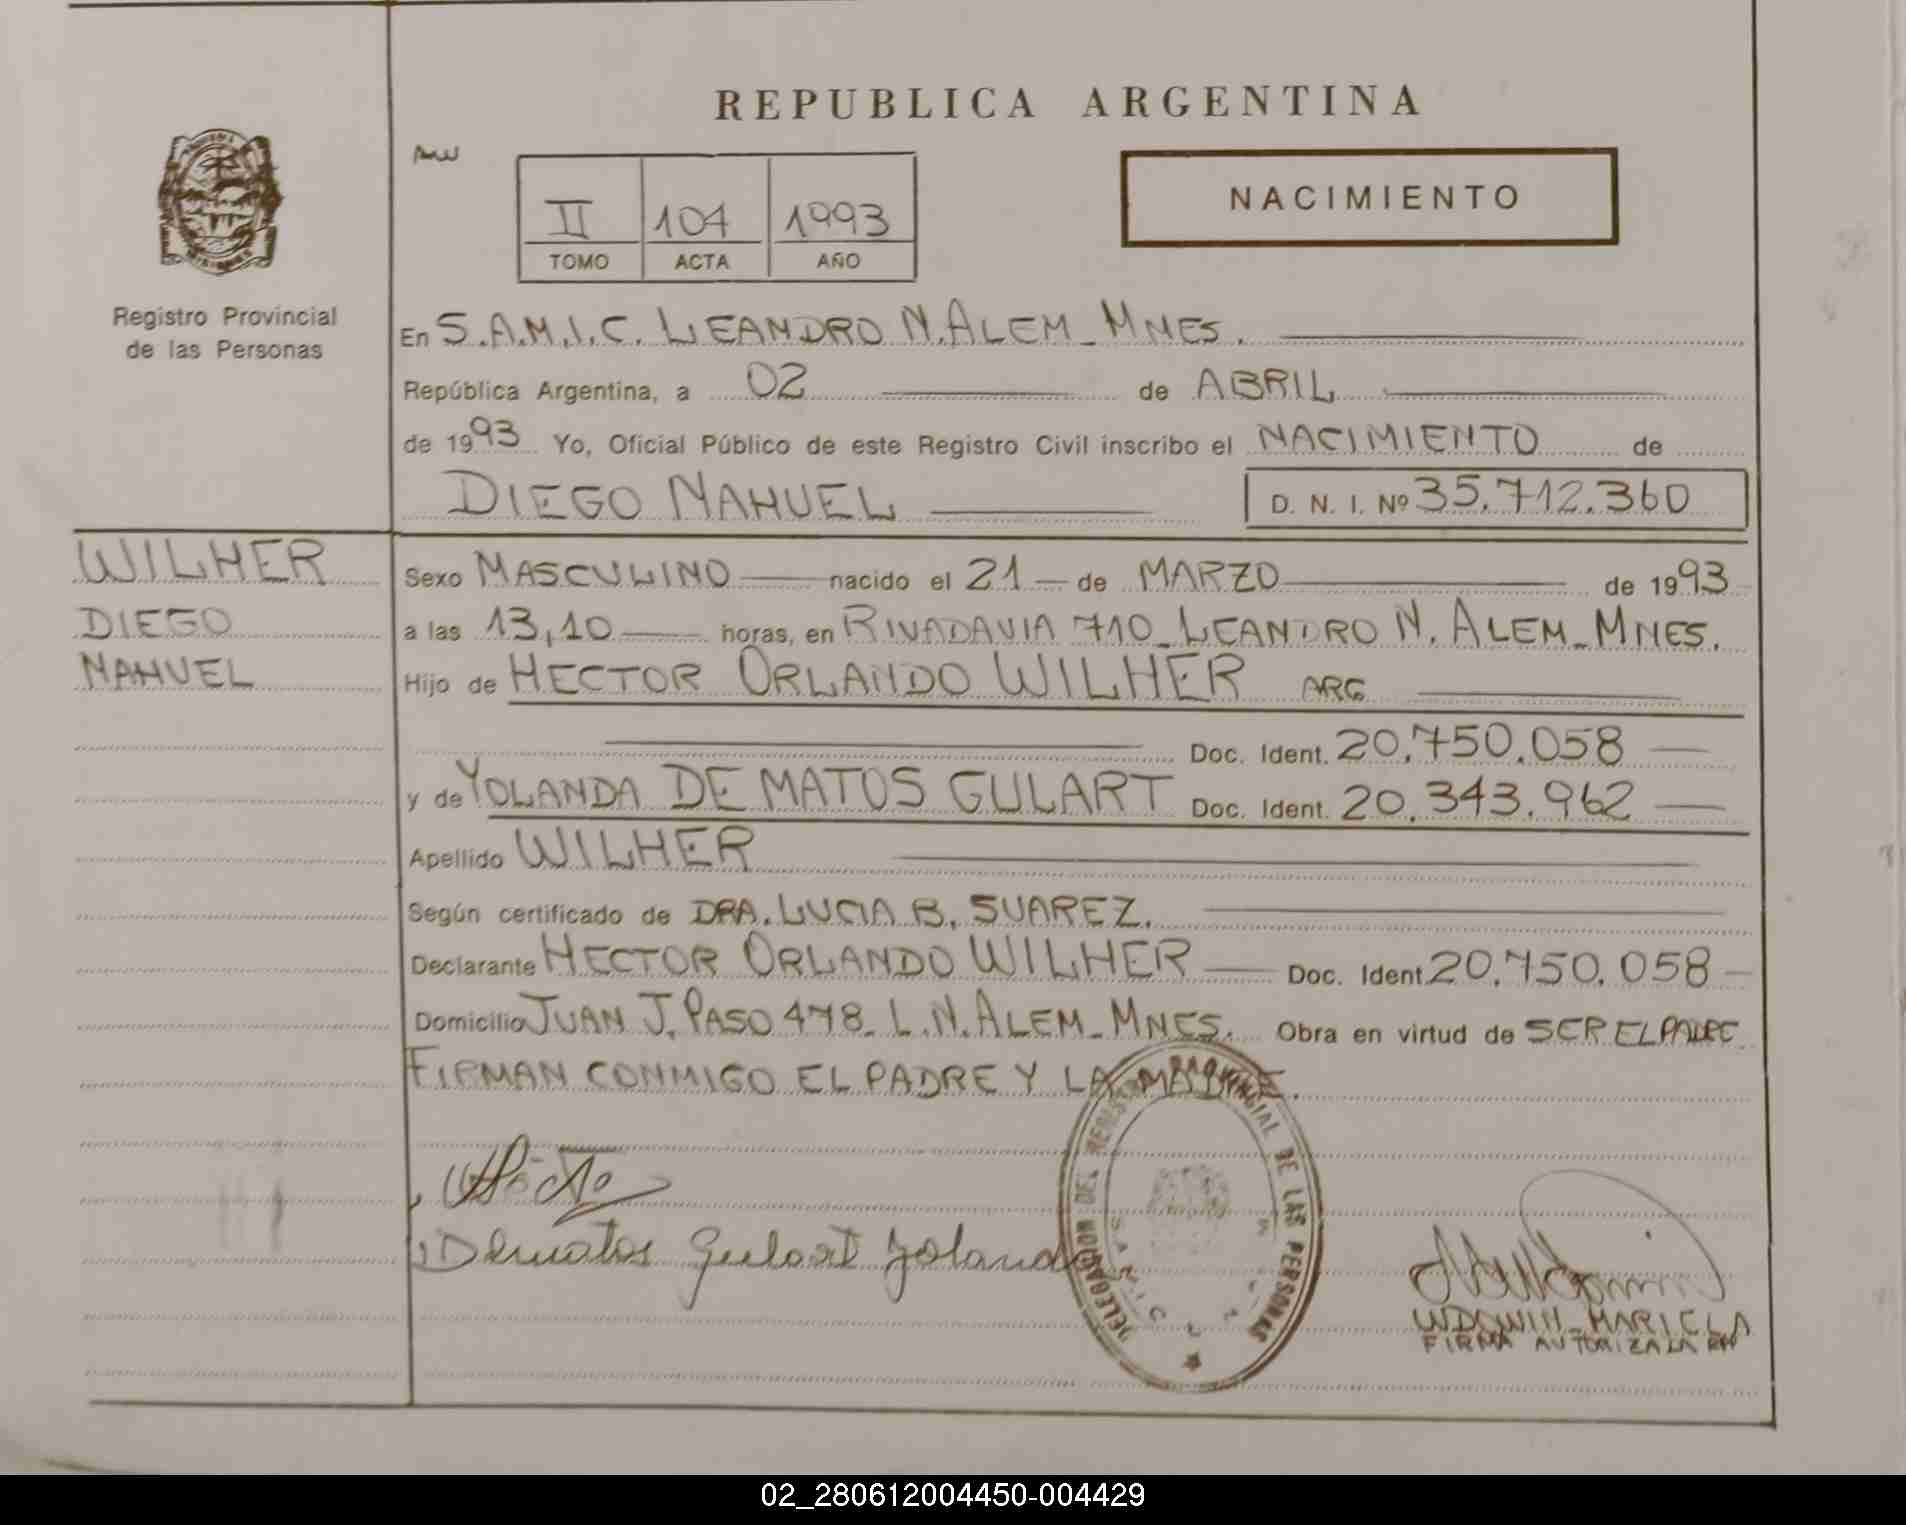 REPUBLICA ARGENTINA
NACIMIENTO
II 104 1993
TOMO ACTA AÑO
Registro Provincial
de las Personas
En S.A.M.I.C. LEANDRO N. ALEM_MNES.
República Argentina, a 02 de ABRIL
de 1993 Yo, Oficial Público de este Registro Civil inscribo el NACIMIENTO de
DIEGO NAHUEL D. N. I. Nº 35.712.360
WILHER
DIEGO
NAHUEL
Sexo MASCULINO nacido el 21 de MARZO de 1993
a las 13,10 horas, en RIVADAVIA 710_LEANDRO N. ALEM_MNES.
Hijo de HECTOR ORLANDO WILHER ARG
Doc. Ident. 20.750.058
y de YOLANDA DE MATOS GULART Doc. Ident. 20.343.962
Apellido WILHER
Según certificado de DRA. LUCIA B. SUAREZ.
Declarante HECTOR ORLANDO WILHER Doc. Ident. 20.750.058
Domicilio JUAN J. PASO 478_ L.N. ALEM_MNES. Obra en virtud de SER EL PADRE
FIRMAN CONMIGO EL PADRE Y LA MADRE.
Dematos Gulart Yolanda
DELEGACION DEL REGISTRO PROVINCIAL DE LAS PERSONAS
MARIELA
FIRMA AUTORIZADA
02_280612004450-004429